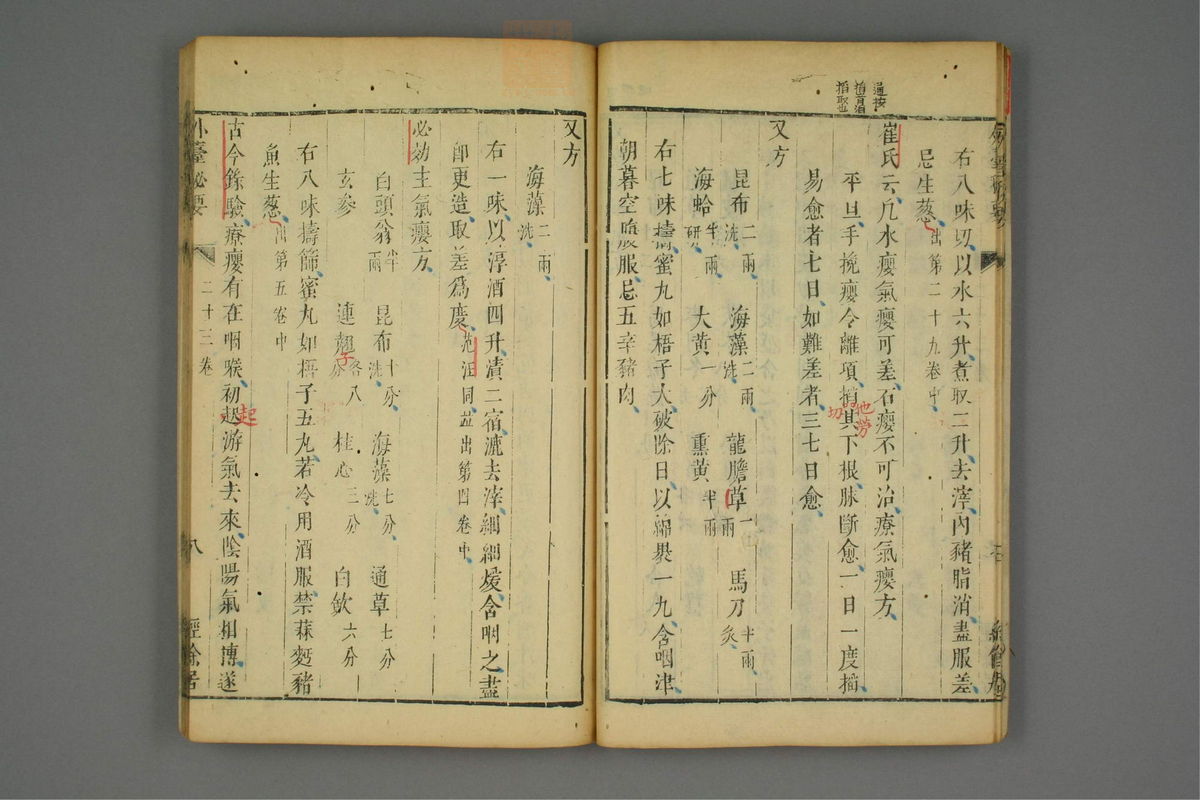 右八味切以水六升煮取二升去滓內豬脂消盡服差
忌生葱出第二十九卷中
崔氏云凡水癭氣癭可差石癭不可治療氣癭方
平旦手挽癭令離項掐其下根脉斷愈一日一度掐
易愈者七日如難差者三七日愈
又方
昆布二兩洗 海藻二兩洗 龍膽草一兩 馬刀半兩炙
海蛤半兩研 大黃一分 熏黃半兩
右七味擣蜜丸如梧子大破除日以綿裹一丸含咽津
朝暮空腹服忌五辛豬肉
又方
海藻二兩洗
右一味以淳酒四升漬二宿漉去滓細細煖含咽之盡
卽更造取差爲度范汪同並出第四卷中
必効主氣癭方
白頭翁半兩 昆布十分洗 海藻七分洗 通草七分
玄參 連翹各八分 桂心三分 白斂六分
右八味擣篩蜜丸如梧子五丸若冷用酒服禁蒜麪豬
魚生葱出第五卷中
古今錄驗療癭有在咽喉初起游氣去來陰陽氣相搏遂
外臺必要 二十三卷 八 經餘居
起
子
切